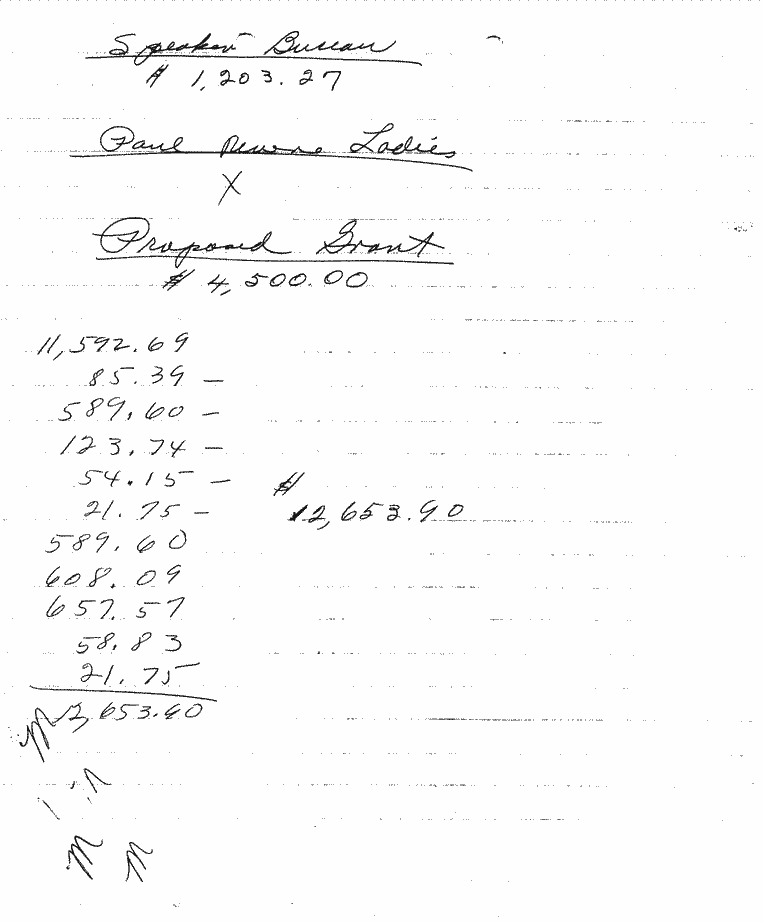 Speakers Bureau
$ 1,203.27
Paul Revere Ladies
X
Proposed Grant
$ 4,500.00
11,592.69
85.39 -
589.60 -
123.74 -
54.15 -
$
21.75 - 12,653.90
589.60
608.09
657.57
58.83
21.75
12,653.90